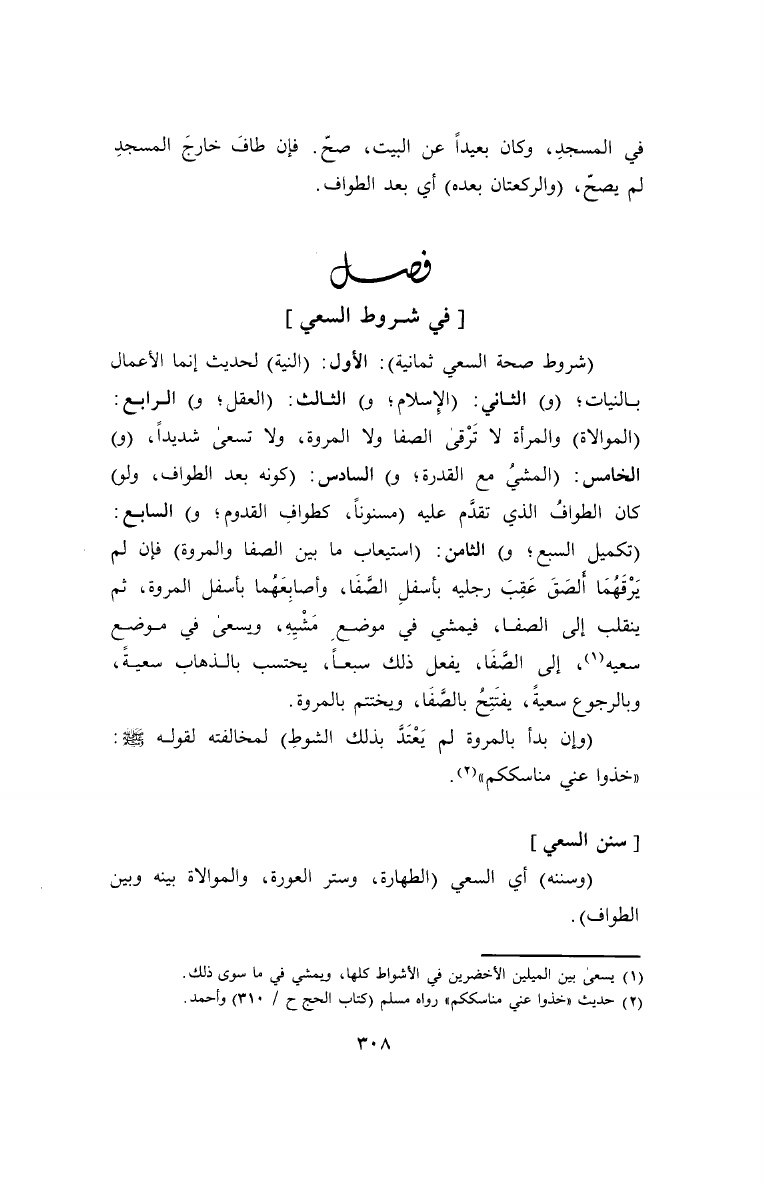 في المسجدِ، وكان بعيداً عن البيت، صحّ. فإن طافَ خارجَ المسجدِ
لم يصحّ، (والركعتان بعده) أي بعد الطواف.
فصل
[ في شروط السعي ]
(شروط صحة السعي ثمانية): الأول: (النية) لحديث إنما الأعمال
بالنيات؛ (و) الثاني: (الإسلام؛ و) الثالث: (العقل؛ و) الرابع:
(الموالاة) والمرأة لا تَرْقىٰ الصفا ولا المروة، ولا تسعىٰ شديداً، (و)
الخامس: (المشيُ مع القدرة؛ و) السادس: (كونه بعد الطواف، ولو)
كان الطوافُ الذي تقدَّم عليه (مسنوناً، كطوافِ القدوم؛ و) السابع:
(تكميل السبع؛ و) الثامن: (استيعاب ما بين الصفا والمروة) فإن لم
يَرْقَهُمَا أَلصَقَ عَقِبَ رجليه بأسفلِ الصَّفَا، وأصابِعَهُما بأسفل المروة، ثم
ينقلب إلى الصفا، فيمشي في موضعِ مَشْيِهِ، ويسعىٰ في موضع
سعيه(١)، إلى الصَّفَا، يفعل ذلك سبعاً، يحتسب بالذهاب سعيةً،
وبالرجوع سعيةً، يفتَتِحُ بالصَّفَا، ويختتم بالمروة.
(وإن بدأ بالمروة لم يَعْتَدَّ بذلك الشوطِ) لمخالفته لقوله ﷺ:
«خذوا عني مناسككم»(٢).
[ سنن السعي ]
(وسننه) أي السعي (الطهارة، وستر العورة، والموالاة بينه وبين
الطواف).
(١) يسعىٰ بين الميلين الأخضرين في الأشواط كلها، ويمشي في ما سوى ذلك.
(٢) حديث «خذوا عني مناسككم» رواه مسلم (كتاب الحج ح / ٣١٠) وأحمد.
٣٠٨